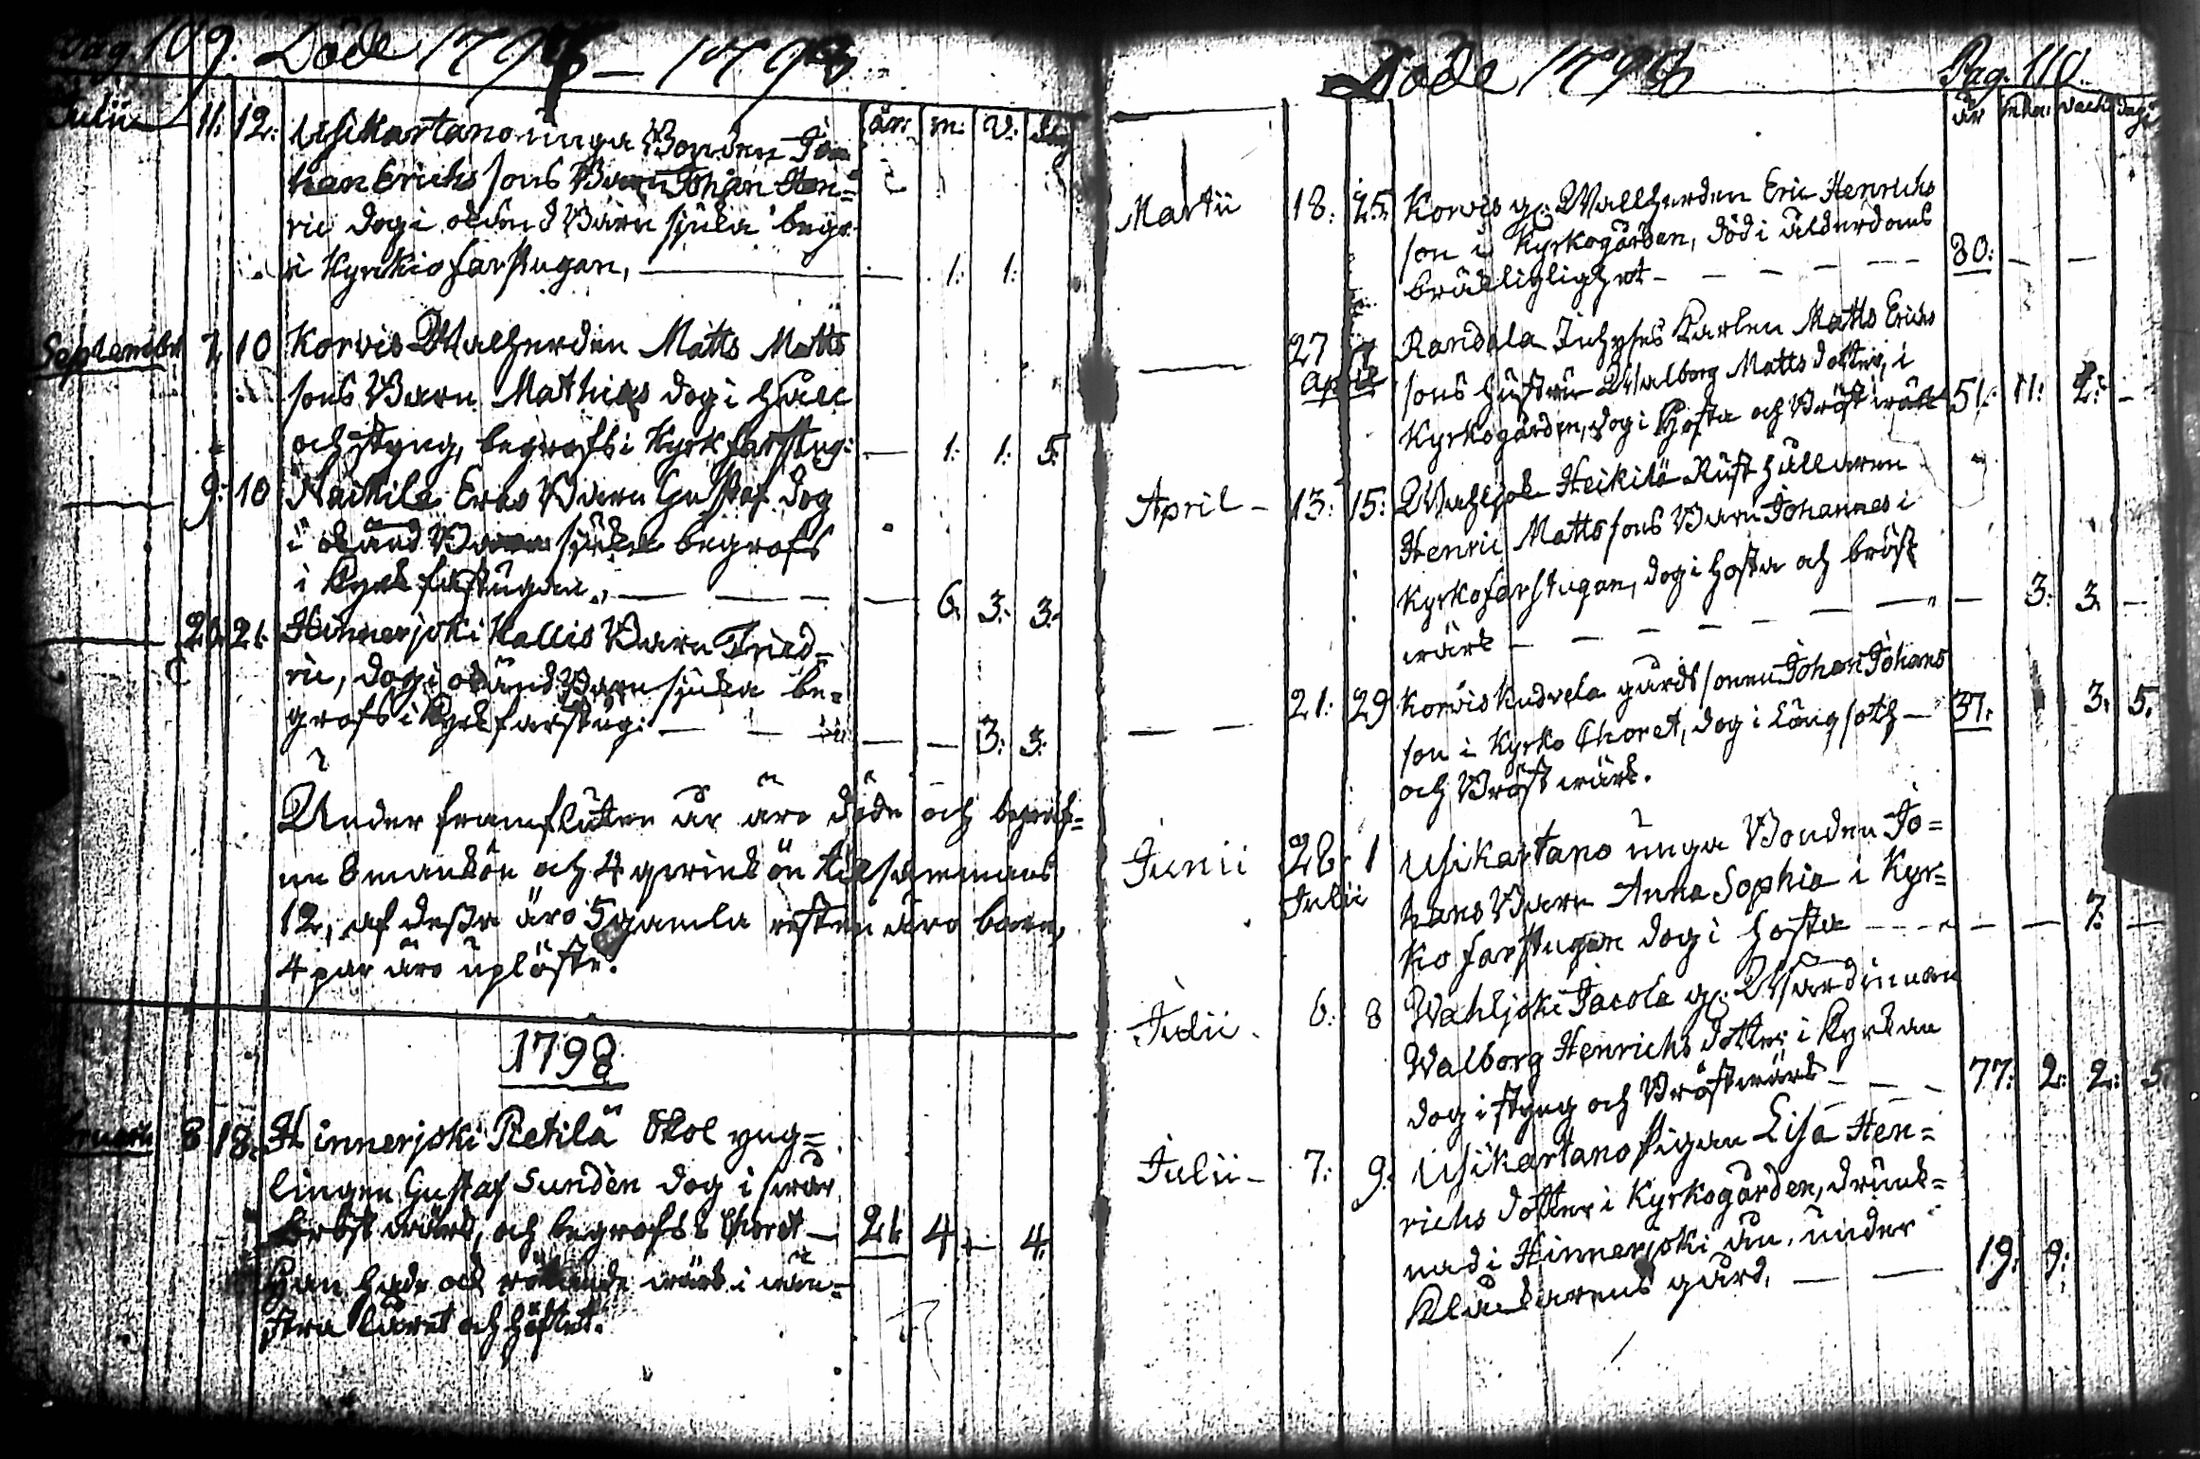 Pag. 109. Döde 1797 — 1798
år. m: v: dag
Julii 11: 12: Usikartano unga Bonden Jo-
han Erichs sons Barn Johan Hen-
ric dog i okänd Barn sjuka begr.
i Kyrkio farstugan, — 1: 1:
September 7 10 Korvis Wallherden Matts Matts
sons Barn Mathias dog i håll
och styng, begrofs i Kyrk farstug: — 1: 1: 5.
— 9: 10 Naikila Eros Barn Gustaf dog
i okänd Barn sjuka begrofs
i Kyrk farstugan, — 6. 3: 3:
— 20 21: Hinnerjoki Kallis Barn Fried-
ric, dog i okänd Barn sjuka be-
grofs i Kyrk farstug: — — — 3: 3:
Under framflutne år äro döde och begraf-
ne 8 mankön och 4 qvinkön tilsammans
12, af dessa äro 5 gamla resten äro barn,
4 par äro uplöste.
1798
8 18. Hinnerjoki Retilä Skol yng-
lingen Gustaf Sundén dog i svår
bröst wärk, och begrofs i Choret — 21. 4 — 4.
Han hade ock wärk i wän-
stra låret och höftet.
Döde 1798 Pag. 110
år mån. wack. dagr
Martii 18: 25: Korvis g: Wallherden Eric Henrichs
son i Kyrkogården, död i ålderdoms
bräcklighet — — — — 80: — —
— 27 April Randala Inhyses Karlen Matts Erichs
sons hustru Walborg Matts dotter, i
Kyrkogården, dog i Hosta och Bröst wärk 51: 11: 2: —
April — 13: 15: Wahljok Heikilä Rusthållaren
Henric Matts sons Barn Johannes i
Kyrkofarstugan, dog i hosta och bröst
wärk — — — — — — — 3: 3. —
— — 21: 29 Korvis Kudvela gårds sonen Johan Johans
son i Kyrko Choret, dog i Långsoth — 37. 3. 5.
och Bröst wärk.
Junii 28 1 Julii Usikartano unga Bonden Jo-
hans Barn Anna Sophia i Kyr-
ko farstugan dog i hosta — — — — 7. —
Julii — 6: 8 Wahljoki Jacola g: Wärdinnan
Walborg Henrichs dotter i Kyrkan
dog i styng och Bröstwärk — — — 77: 2: 2: 5
Julii — 7: 9: Usikartano Pigan Lisa Hen-
richs dotter i Kyrkogården, drunk-
nad i Hinnerjoki åen, under
Klockarens gård. — — 19: 9: